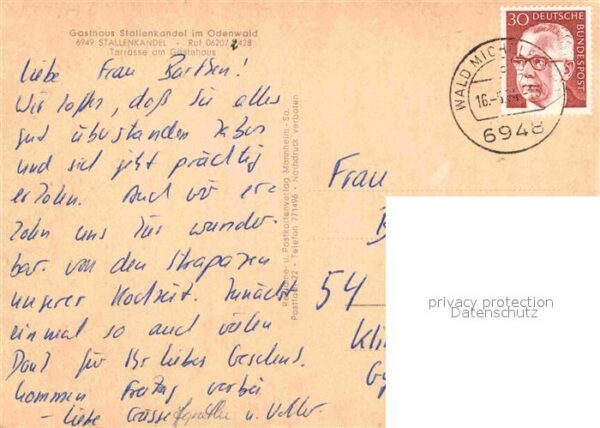 Gasthaus Stallenkandel im Odenwald
6949 STALLENKANDEL - Ruf 06207 2428
Terrasse am Gästehaus
Liebe Frau
Wir hoffen, daß Sie alles
gut überstanden haben
und sich jetzt prächtig
erholen. Auch wir er-
holen uns hier wunder-
bar von den Strapazen
unserer Hochzeit. Zunächst
einmal so auch vielen
Dank für Ihr liebes Geschenk.
kommen Freitag vorbei
- liebe Grüsse u. Volker
Postkartenverlag Mannheim - So.
Postfach 22 - Telefon 771496 - Nachdruck verboten
30 DEUTSCHE
BUNDESPOST
WALD MICHELB
16.-5.
6948
Frau
B
54
Kli
privacy protection
Datenschutz